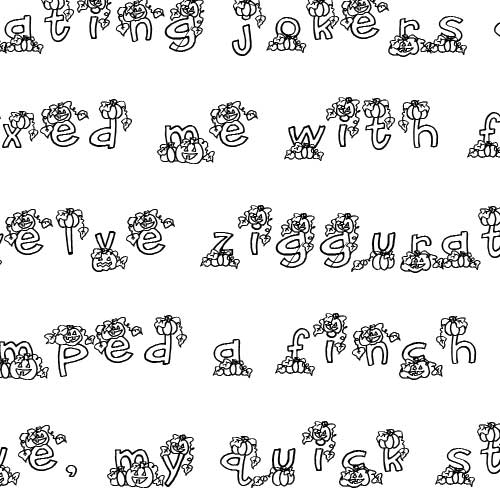 ating jokers
xed me with f
elve ziggurat
mped a finch
ve, my quick st